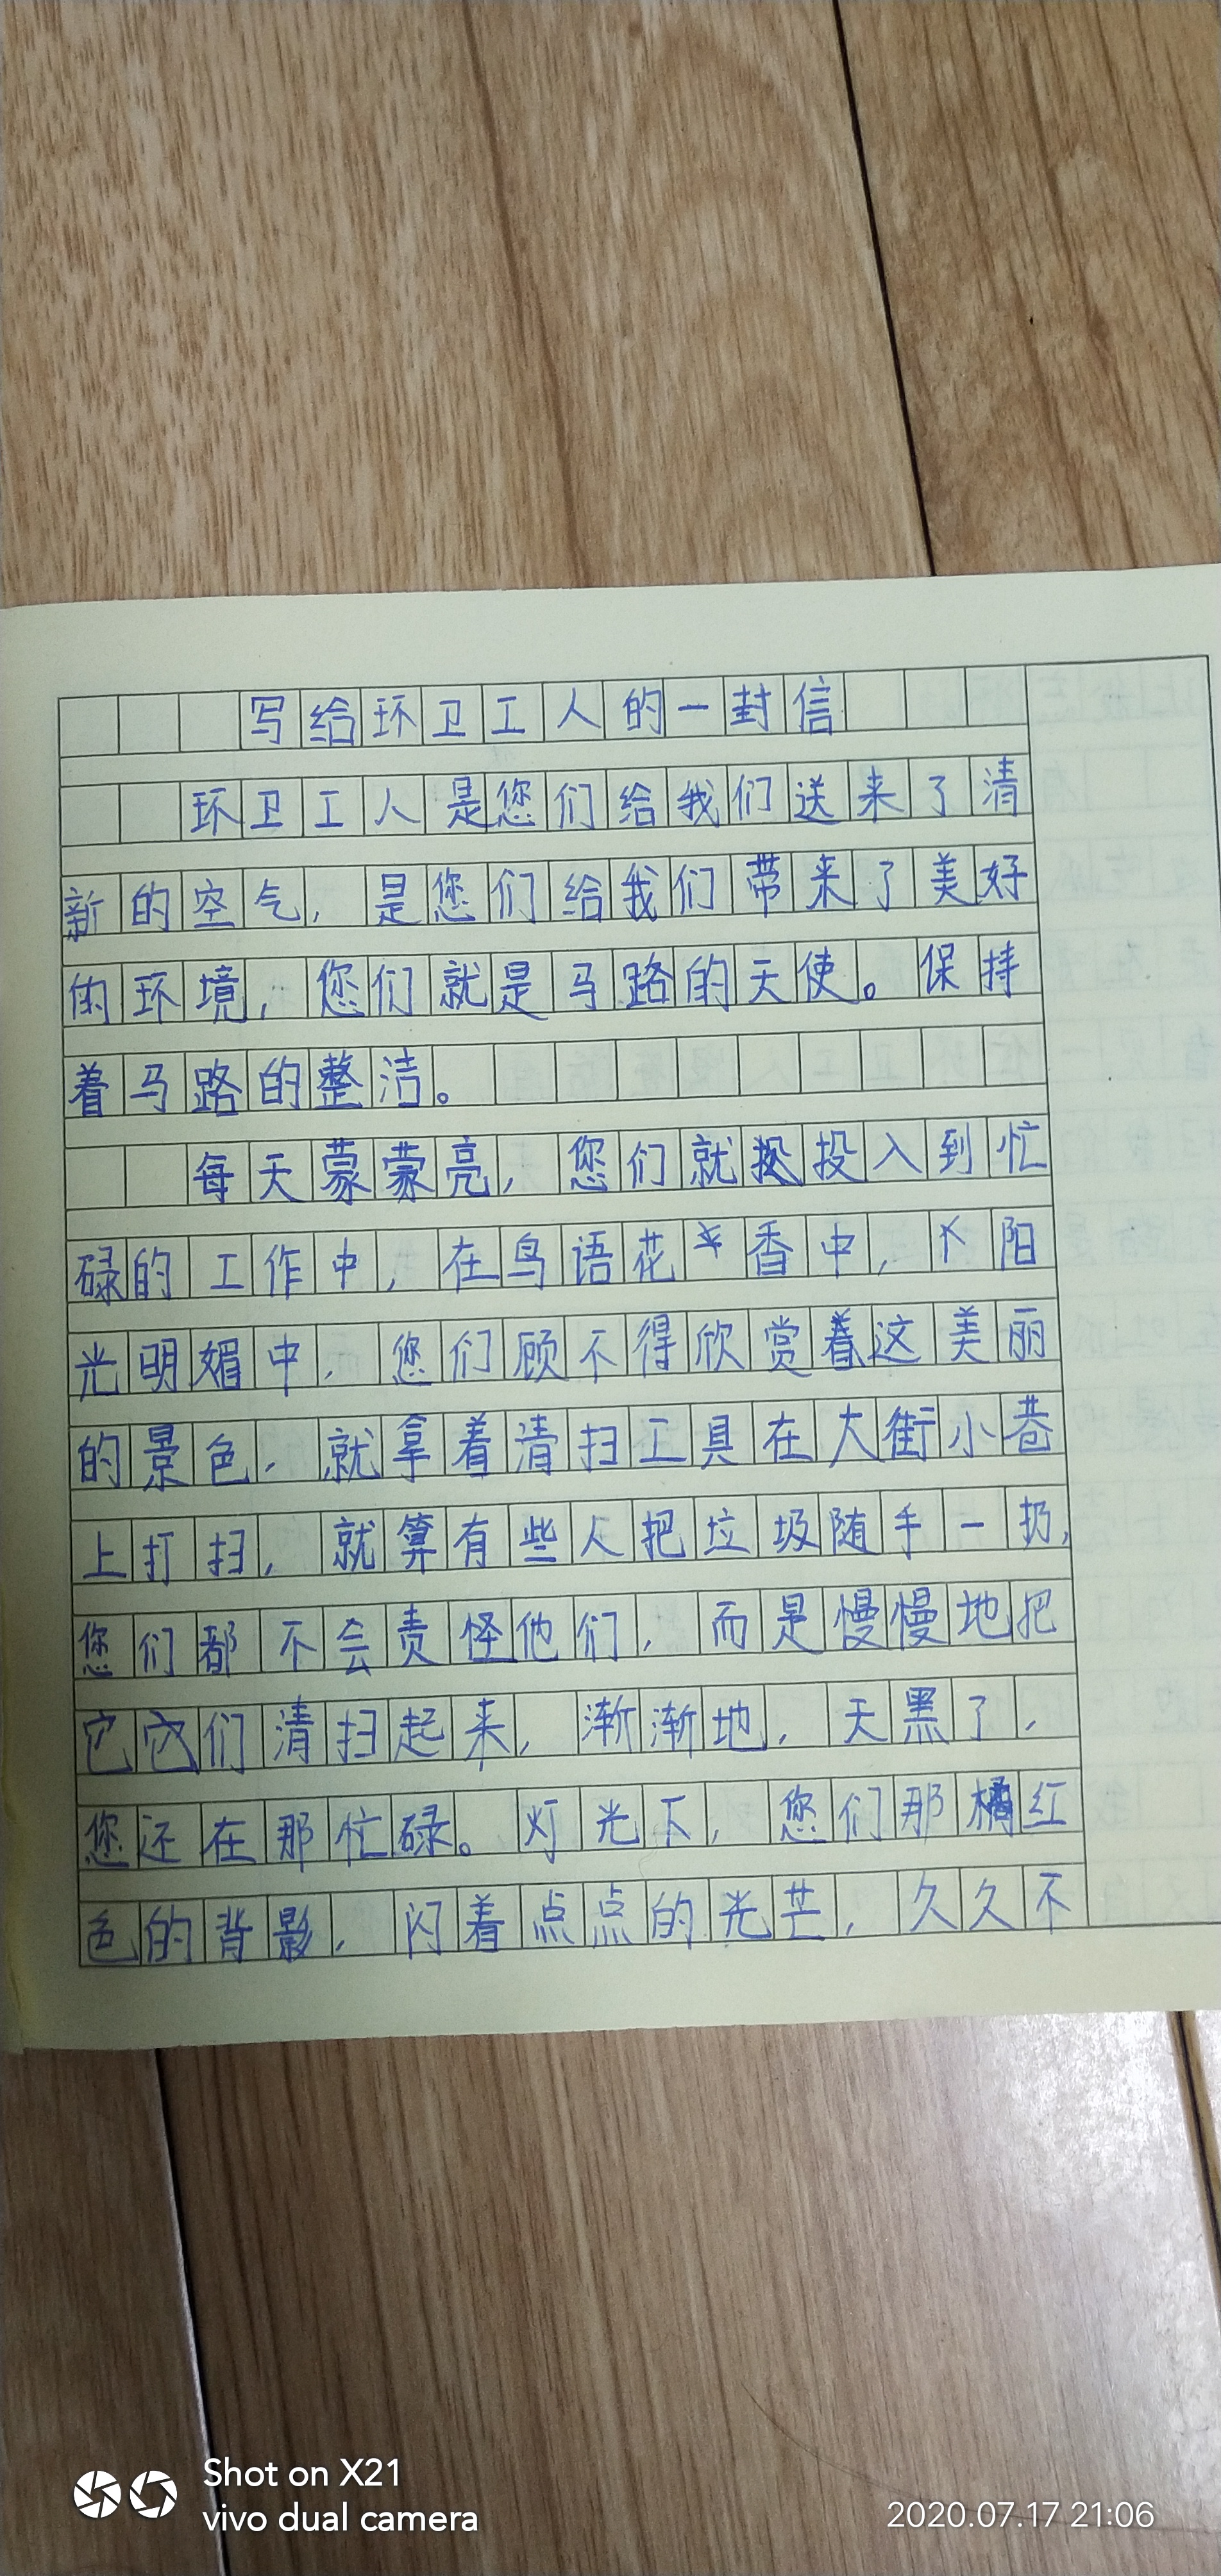 写给环卫工人的一封信
环卫工人是您们给我们送来了清
新的空气，是您们给我们带来了美好
的环境，您们就是马路的天使。保持
着马路的整洁。
每天蒙蒙亮，您们就投入到忙
碌的工作中，在鸟语花香中，阳
光明媚中，您们顾不得欣赏着这美丽
的景色，就拿着清扫工具在大街小巷
上打扫，就算有些人把垃圾随手一扔，
您们都不会责怪他们，而是慢慢地把
它它们清扫起来，渐渐地，天黑了，
您还在那忙碌。灯光下，您们那橘红
色的背影，闪着点点的光芒，久久不
Shot on X21
vivo dual camera
2020.07.17 21:06